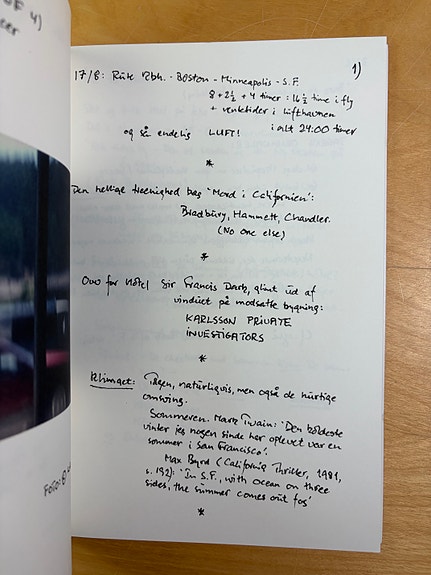 OF 4)
1)
17/8: Rute Kbh. - Boston - Minneapolis - S.F.
8 + 2½ + 4 timer = 16½ time i fly
+ ventetider i lufthavnen
i alt 24:00 timer
og så endelig LUFT!
*
Den hellige treenighed bag 'Mord i Californien':
Bradbury, Hammett, Chandler.
(No one else)
*
Ovo for Hotel Sir Francis Darb, glimt ud af
vinduet på modsatte bygning:
KARLSSON PRIVATE
INVESTIGATORS
*
Klimaet: Tågen, naturligvis, men også de hurtige
omsving.
Sommeren. Mark Twain: 'Den koldeste
vinter jeg nogen sinde har oplevet var en
sommer i San Francisco'.
Max Byrd (California Thriller, 1981,
s. 192): 'In S.F., with ocean on three
sides, the summer comes out fog'
*
Foto: